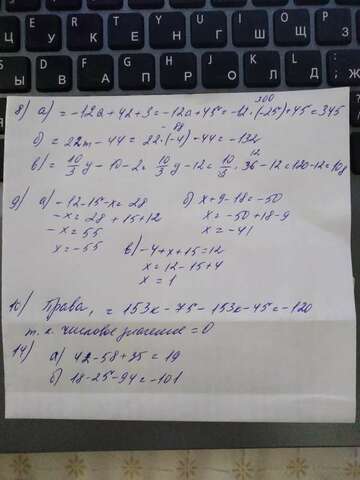 8) а) = -12a + 42 + 3 = -12a + 45 = -12 · (-25) + 45 = 345
300
б) = 22m - 44 = 22 · (-4) - 44 = -132
-88
в) = 10/3 y - 10 - 2 = 10/3 y - 12 = 10/3 · 36 - 12 = 120 - 12 = 108
12
9) а) -12 - 15 - x = 28
-x = 28 + 15 + 12
-x = 55
x = -55
б) x + 9 - 18 = -50
x = -50 + 18 - 9
x = -41
в) -4 + x + 15 = 12
x = 12 - 15 + 4
x = 1
10) Права, = 153к - 75 - 153к - 45 = -120
т. к. числовое значение = 0
14) а) 42 - 58 + 35 = 19
б) 18 - 25 - 94 = -101